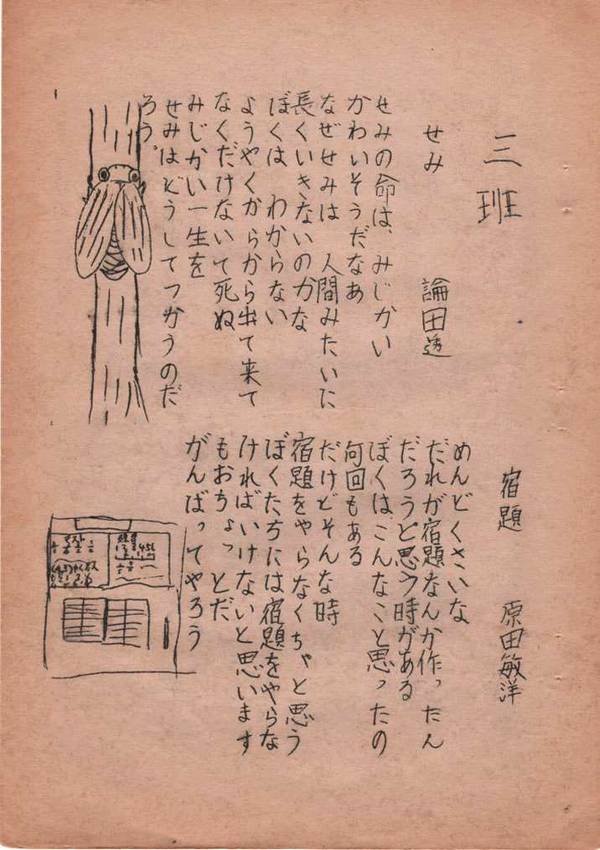 三班
せみ 論田透
せみの命は、みじかい
かわいそうだなあ
なぜせみは 人間みたいに
長くいきないのかな
ぼくは わからない
ようやくからから出て来て
なくだけないて死ぬ
みじかい一生を
せみはどうしてつかうのだ
ろう。
宿題 原田敏洋
めんどくさいな
だれが宿題なんか作ったん
だろうと思う時がある
ぼくはこんなこと思ったの
何回もある
だけどそんな時
宿題をやらなくちゃと思う
ぼくたちには宿題をやらな
ければいけないと思います
もおちょっとだ
がんばってやろう